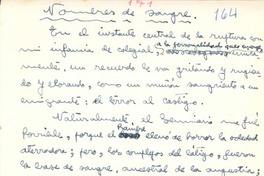 171
Nombres de sangre.
164
En el instante central de la ruptura con
a la personalidad que
mi infancia de colegial,
mente, un recuerdo le va gritando y rugien-
do y llorando, como un muñón sangriento a un
emigrante: el terror al castigo.
Naturalmente, el Seminario me fué
horrible, porque el hambre llenó de horror la soledad
aterradora; pero, los complejos del látigo, fueron
la base de sangre, ancestral de la angustia;